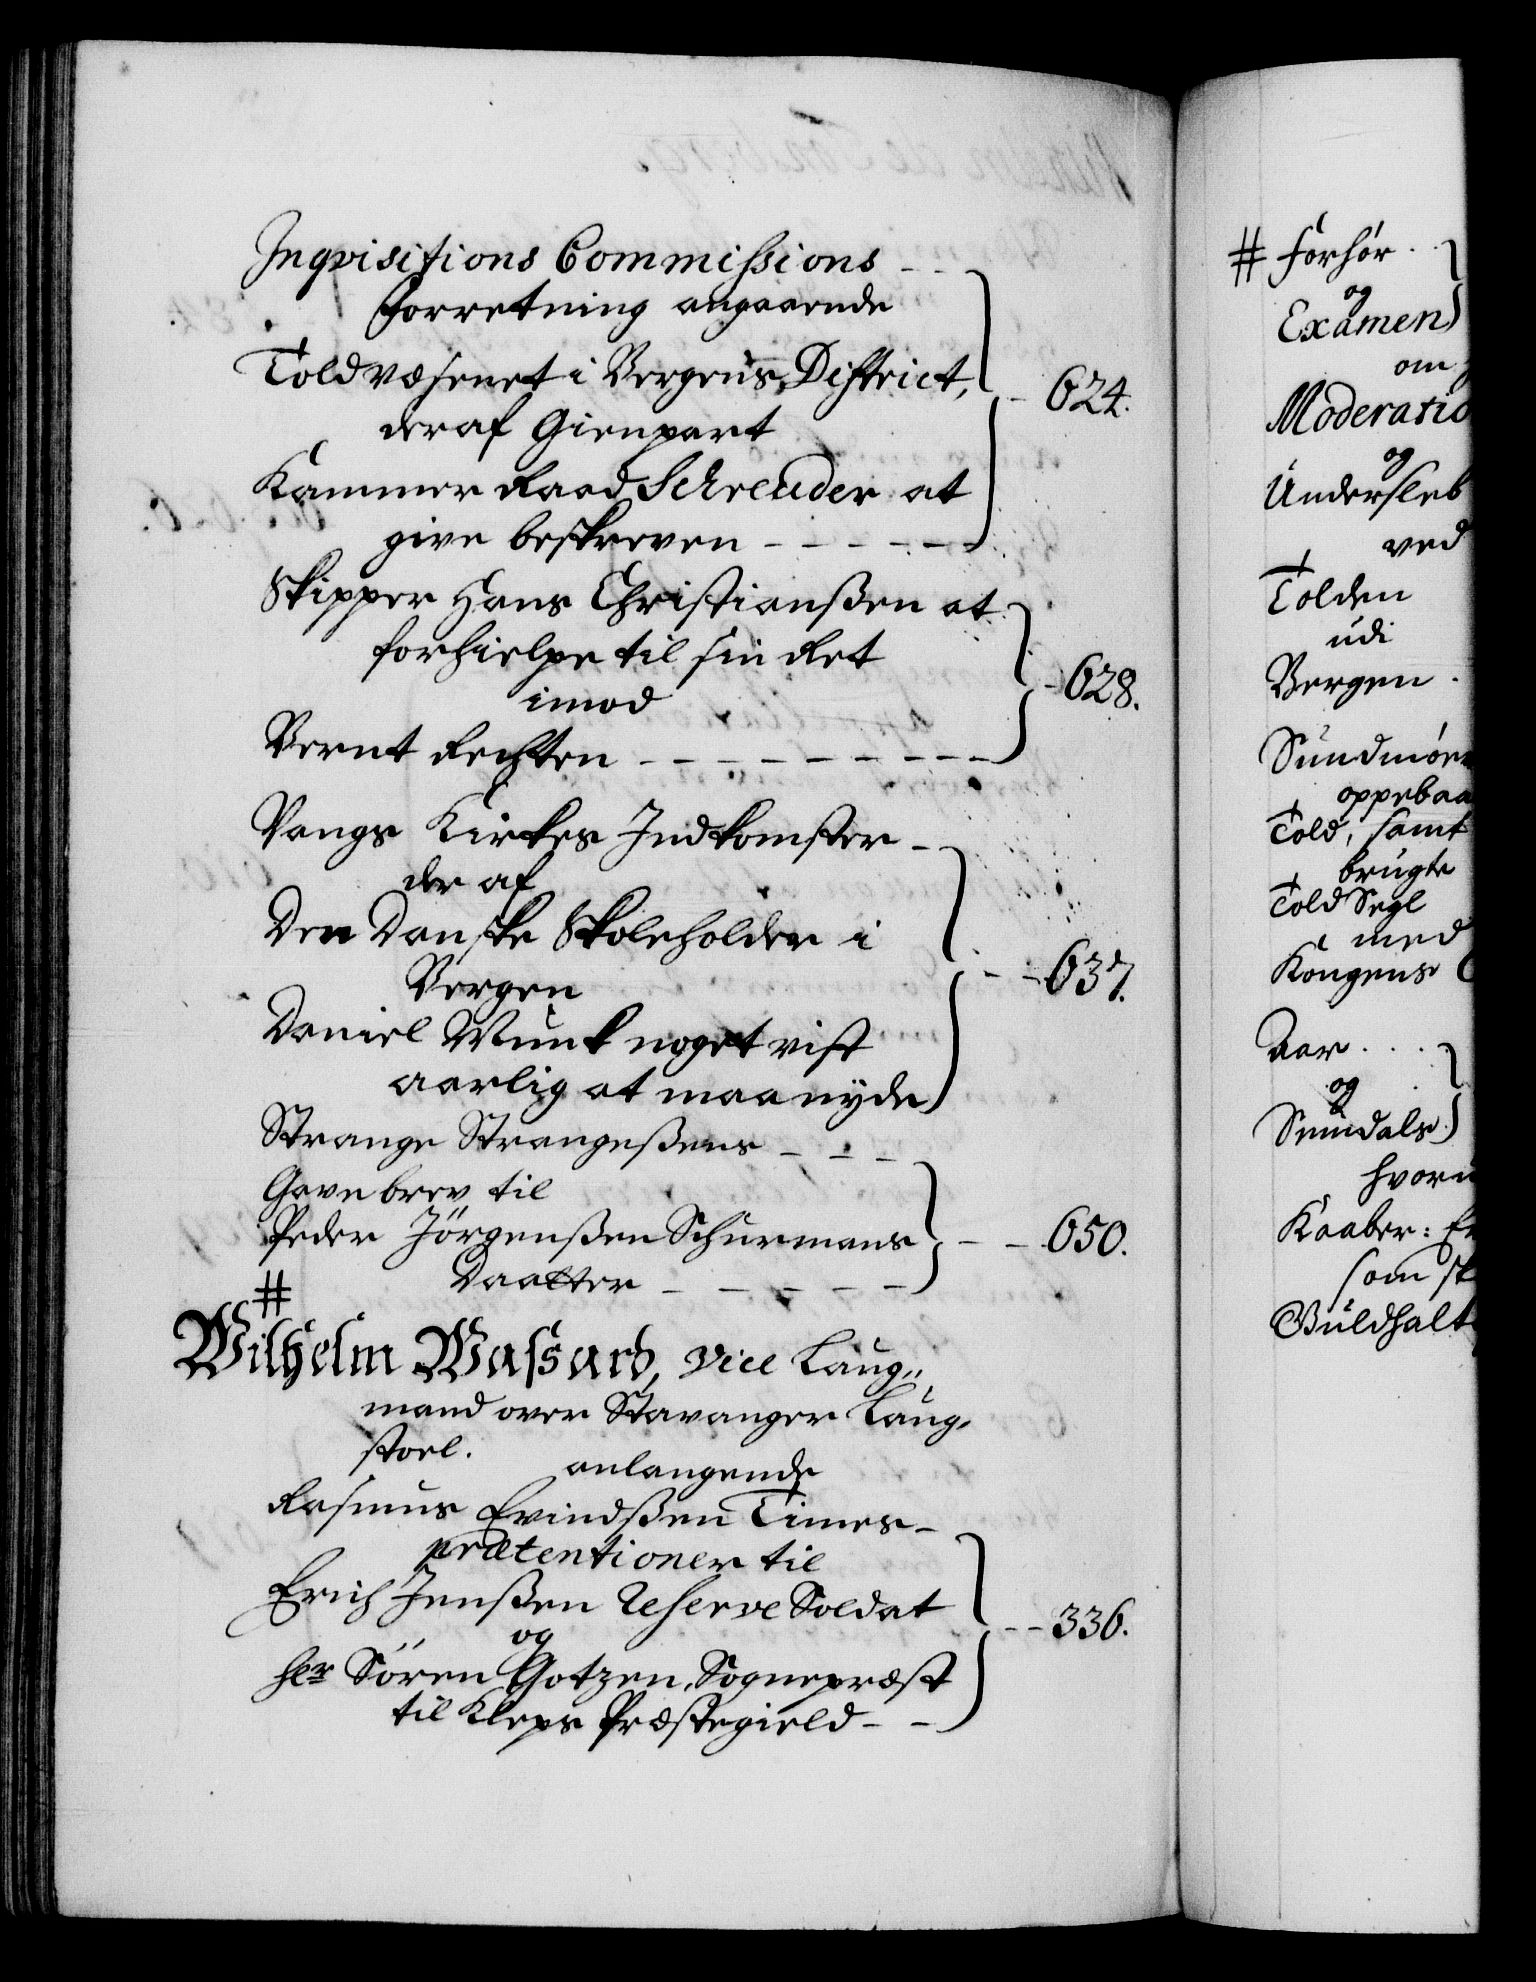 Inqvisitions Commissions - -
Forretning angaaende
Toldvæsenet i Bergens District,
deraf Gienpart
Kammer Raad Schreuder at
give beskreven - - - - - - 624.
Skipper Hans Christianßen at
forhielpe til sin Ret
imod
Bernt Rechten - - - - - - - - - 628.
Vangs Kirkes Indkomster -
der af
Den Danske Skoleholder i
Bergen
Daniel Munk noget vist
aarlig at maa nyde - - 637.
Strange Strangeßens - - -
Gavebrev til
Peder Jörgenßen Schurmans
Daatter - - - - - - - 650.
#
Wilhelm Wassard, Vice Laug„
mand over Stavanger Laug„
stoel.
anlangende
Rasmus Evindßen Times -
prætentioner til
Erich Jenßen Reserve Soldat
og
Hr Sören Gotzen, Sognepræst
til Kleps Præstegield - - 336.
# Forhør
og
Examen
om
Moderatio
og
Undersleb
ved
Tolden
udi
Bergen
Sundmöer
oppebaa
Told, samt
brugte
Told Segl
med
Kongens
Aar
og
Semdals
hvoru
Kaaber: Er
som sk
Guldhalt